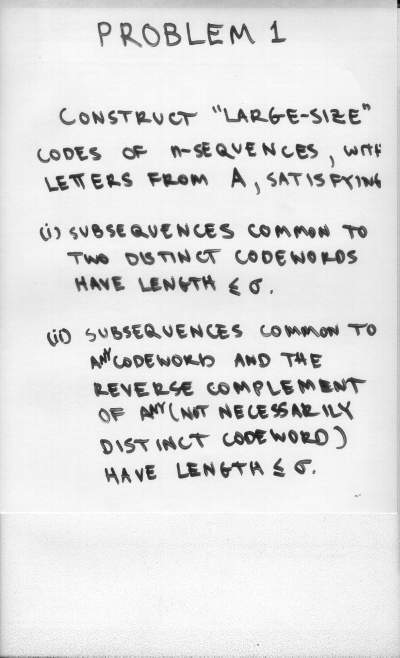 PROBLEM 1
CONSTRUCT "LARGE-SIZE"
CODES OF n-SEQUENCES, WITH
LETTERS FROM A, SATISFYING
(i) SUBSEQUENCES COMMON TO
TWO DISTINCT CODEWORDS
HAVE LENGTH ≤ σ.
(ii) SUBSEQUENCES COMMON TO
ANY CODEWORD AND THE
REVERSE COMPLEMENT
OF ANY (NOT NECESSARILY
DISTINCT CODEWORD)
HAVE LENGTH ≤ σ.